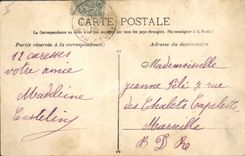 CARTE POSTALE
La Correspondance au recto n'est pas acceptée par tous les pays étrangers. (Se renseigner à la Poste)
Partie réservée à la correspondance
Adresse du destinataire
12 caresses
votre amie
Madeleine
Castelin
Mademoiselle
Jeanne Féli 7 rue
des Chalets Capelette
Marseille
B D R